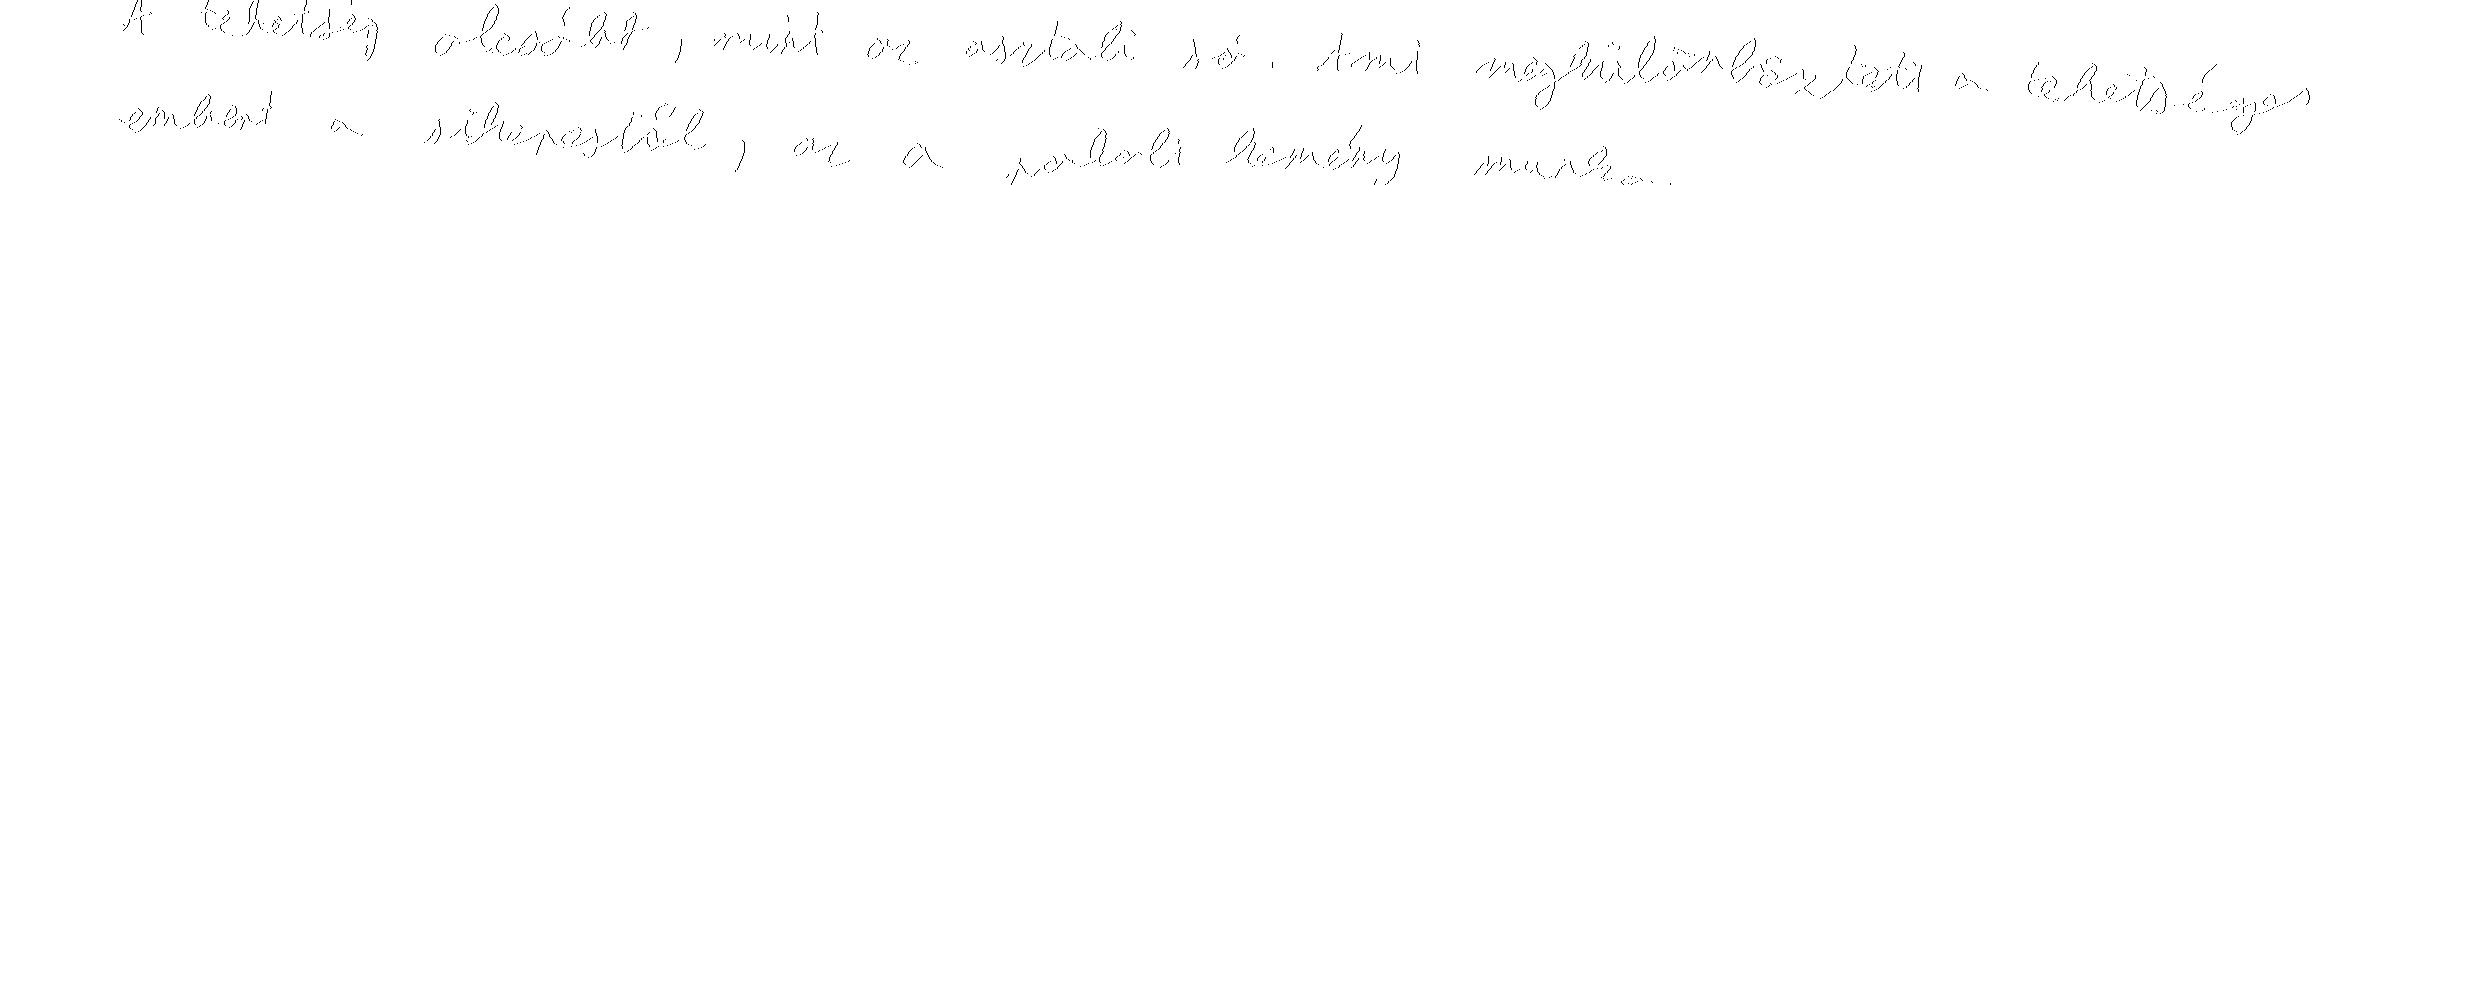 A tehetség olcsóbb, mint az asztali só. Ami megkülönbözteti a tehetséges
embert a sikerestől, az a rodali kemény munka.